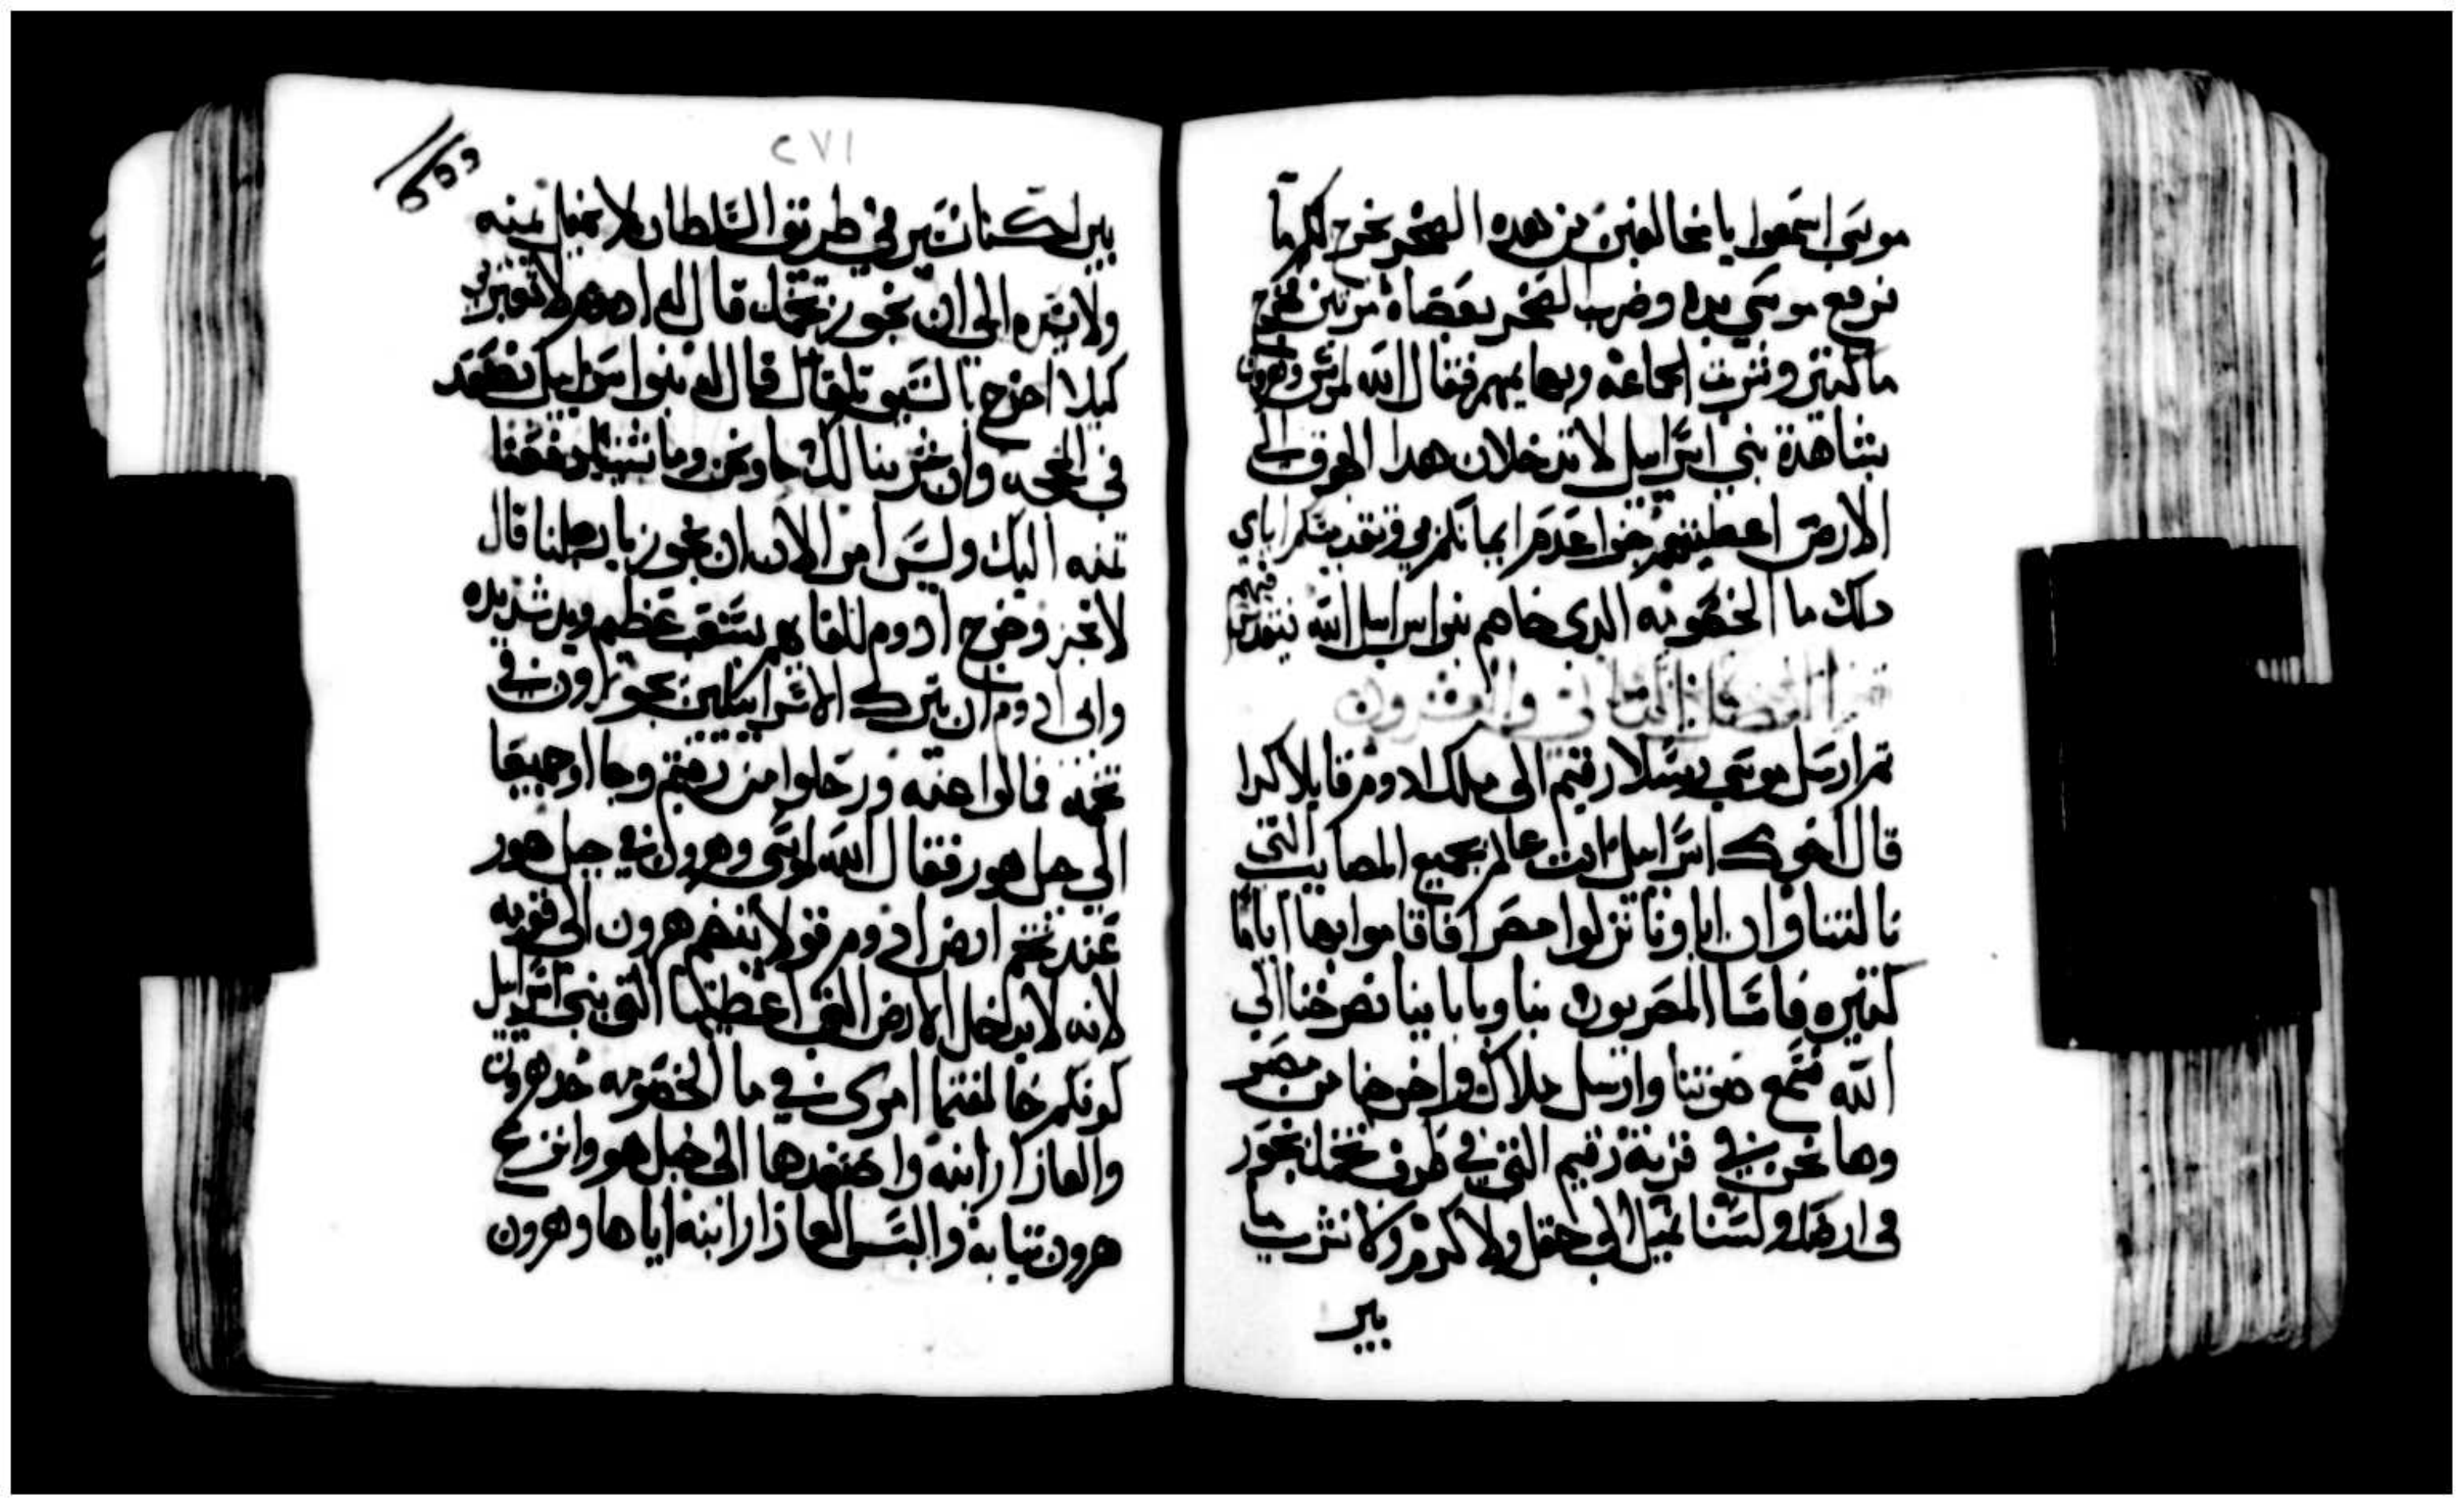 موسي اسمعوا يا مخالفين من هده الصخر نخرج لكم ما
فرفع موسي يده وضرب الصخر بعصاه مرتين فخرج
ما كتير وشربت الجماعه وبهايمهم فقال الله لموسي وهرون
بشاهدة بني اسراييل لا تدخلان هدا الجوق الي
الارض اعطيتهم جزا عدم ايمانكم بي وتقديسكم اياي
دلك ما الخصومه الدي خاصم بنوا اسراييل الله فيتقدس فيهم
تمرا الفصل الثاني والعشرون
تم ارسل موسي رسلا رقيم الي ملك ادوم قايلا كدا
قال اخوك اسراييل انت عالم بجميع المصايب التي
نالتنا وان اباونا نزلوا مصر فاقاموا بها اياما
كتيره فاسا المصريون بنا وبابابينا فصرخنا الي
الله فسمع صوتنا وارسل ملاك واخرجنا من مصر
وها نحن في قرية رقيم التي في طرف تخمك نجوز
في ارضك ولسنا نميل الي حقل ولا كرم ولا نشرب ما
بير
٢٧١
بير لكننا نسير في طريق السلطان لا نميل يمنه
ولا يسره الي ان نجوز تخمك قال له ادوم لا تعبر بي
كيلا اخرج بالسيف تلقاك قال له بنوا اسراييل نصعد
في المحجه وان شربنا لك ما ونحن وماشيتنا دفعنا
تمنه اليك وليس امر الا ان نجوز بارجلنا قال
لا تجز وخرج ادوم للقاهم بشعب عظيم ويد شديده
وابي ادوم ان يترك الاسراييليين يجوزون في
تخمه فمالوا عنه ورحلوا من رقيم وجاوا جميعا
الي جبل هور فقال الله لموسي وهرون في جبل هور
عند تخم ارض ادوم قولا ينضم هرون الي قومه
لانه لا يدخل الارض التي اعطيتها التي بني اسراييل
كونكم خالفتما امري في ما الخصومه خد هرون
والعازار ابنه واصعدهما الي جبل هور وانزع
هرون تيابه والبس العازار ابنه اياها وهرون